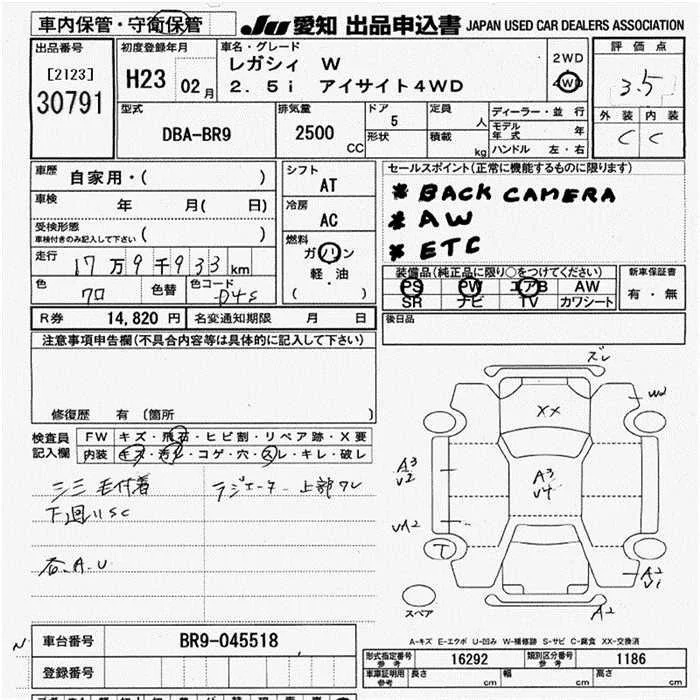 車内保管・守衛保管
JU 愛知 出品申込書 JAPAN USED CAR DEALERS ASSOCIATION
出品番号
[2123]
30791
初度登録年月
H23 02月
車名・グレード
レガシィ W
2.5i アイサイト4WD
2WD
4WD
評価点
3.5
外装 内装
C C
型式
DBA-BR9
排気量
2500 CC
ドア
5
形状
定員
人
積載
kg
ディーラー・並行
モデル年式 年
ハンドル 左・右
車歴
自家用・( )
車検
年 月( 日)
受検形態
車検付きのみ記入して下さい ( )
走行
17万9千933km
色
クロ
色替
色コード
D4S
シフト
AT
冷房
AC
燃料
ガソリン
軽・油
( )
セールスポイント(正常に機能するものに限ります)
* BACK CAMERA
* AW
* ETC
装備品(純正品に限り○をつけてください)
PS PW エアB AW
SR ナビ TV カワシート
新車保証書
有・無
R券 14,820 円 名変通知期限 月 日
後日品
注意事項申告欄(不具合内容等は具体的に記入して下さい)
修復歴 有 〔箇所 〕
検査員
記入欄
FW キズ・飛石・ヒビ割・リペア跡・X要
内装 キズ・汚レ・コゲ・穴・スレ・キレ・破レ
毛付着
ラジエーター上部ワレ
下回りSC
各.A.U
ズレ
W2
XX
A3
V2
A3
V4
UA2
T
A2
V1
スペア
A2
A-キズ E-エクボ U-凹み W-補修跡 S-サビ C-腐食 XX-交換済
N
車台番号 BR9-045518
登録番号
型式指定番号
参考
16292
類別区分番号
参考
1186
車庫証明用
参考
長さ cm 幅 cm 高さ cm